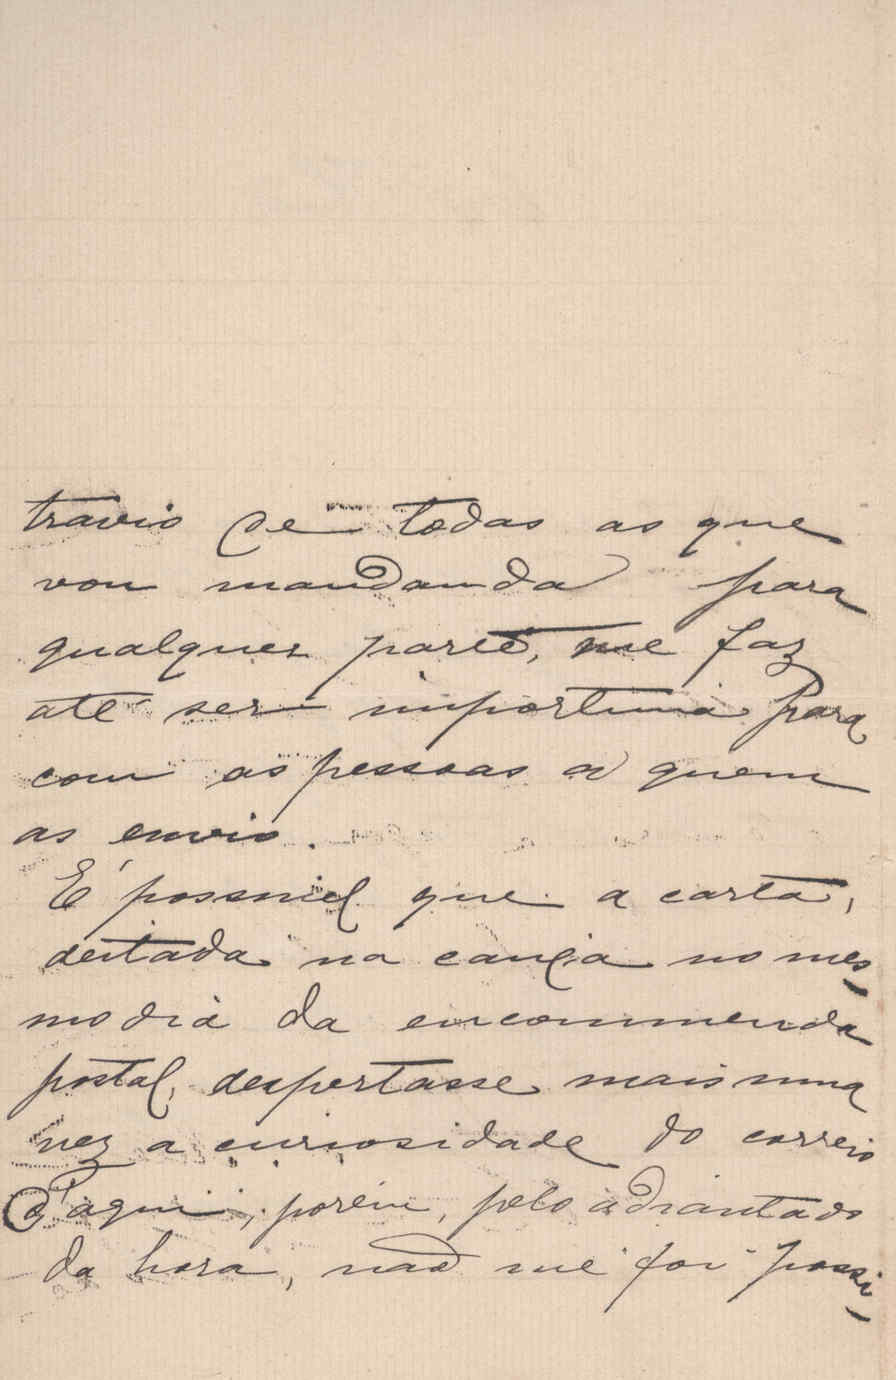 travio de todas as que
vou mandando para
qualquer parte, me faz
até ser importuna para
com as pessoas a quem
as envio.
É possivel que a carta,
deitada na caixa no mes-
mo dia da encommenda
postal, despertasse mais uma
vez a curiosidade do correio
d'aqui, porém, pelo adiantado
da hora, não me foi possi-